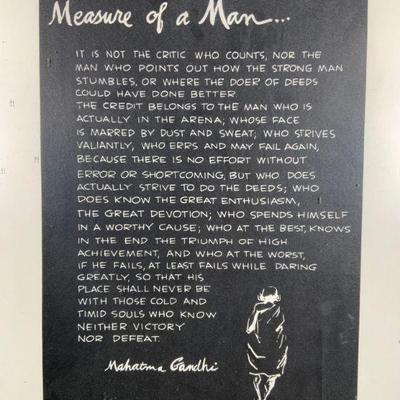 Measure of a Man...
IT IS NOT THE CRITIC WHO COUNTS, NOR THE
MAN WHO POINTS OUT HOW THE STRONG MAN
STUMBLES, OR WHERE THE DOER OF DEEDS
COULD HAVE DONE BETTER.
THE CREDIT BELONGS TO THE MAN WHO IS
ACTUALLY IN THE ARENA; WHOSE FACE
IS MARRED BY DUST AND SWEAT; WHO STRIVES
VALIANTLY, WHO ERRS AND MAY FAIL AGAIN,
BECAUSE THERE IS NO EFFORT WITHOUT
ERROR OR SHORTCOMING, BUT WHO DOES
ACTUALLY STRIVE TO DO THE DEEDS; WHO
DOES KNOW THE GREAT ENTHUSIASM,
THE GREAT DEVOTION; WHO SPENDS HIMSELF
IN A WORTHY CAUSE; WHO AT THE BEST, KNOWS
IN THE END THE TRIUMPH OF HIGH
ACHIEVEMENT, AND WHO AT THE WORST,
IF HE FAILS, AT LEAST FAILS WHILE DARING
GREATLY, SO THAT HIS
PLACE SHALL NEVER BE
WITH THOSE COLD AND
TIMID SOULS WHO KNOW
NEITHER VICTORY
NOR DEFEAT.
Mahatma Gandhi